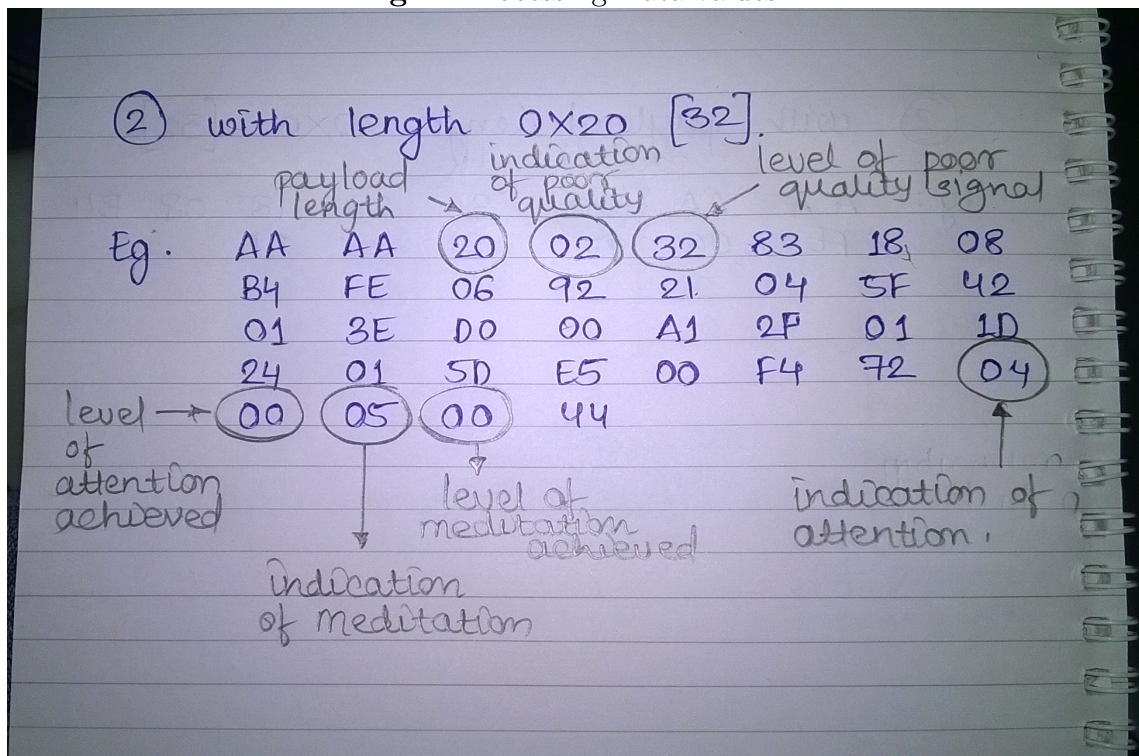 ② with length 0X20 [32].
payload length
indication of poor quality
level of poor quality signal
Eg. AA AA 20 02 32 83 18 08
B4 FE 06 92 21 04 5F 42
01 3E D0 00 A1 2F 01 1D
24 01 5D E5 00 F4 72 04
level of attention achieved
00 05 00 44
level of meditation achieved
indication of attention.
indication of meditation